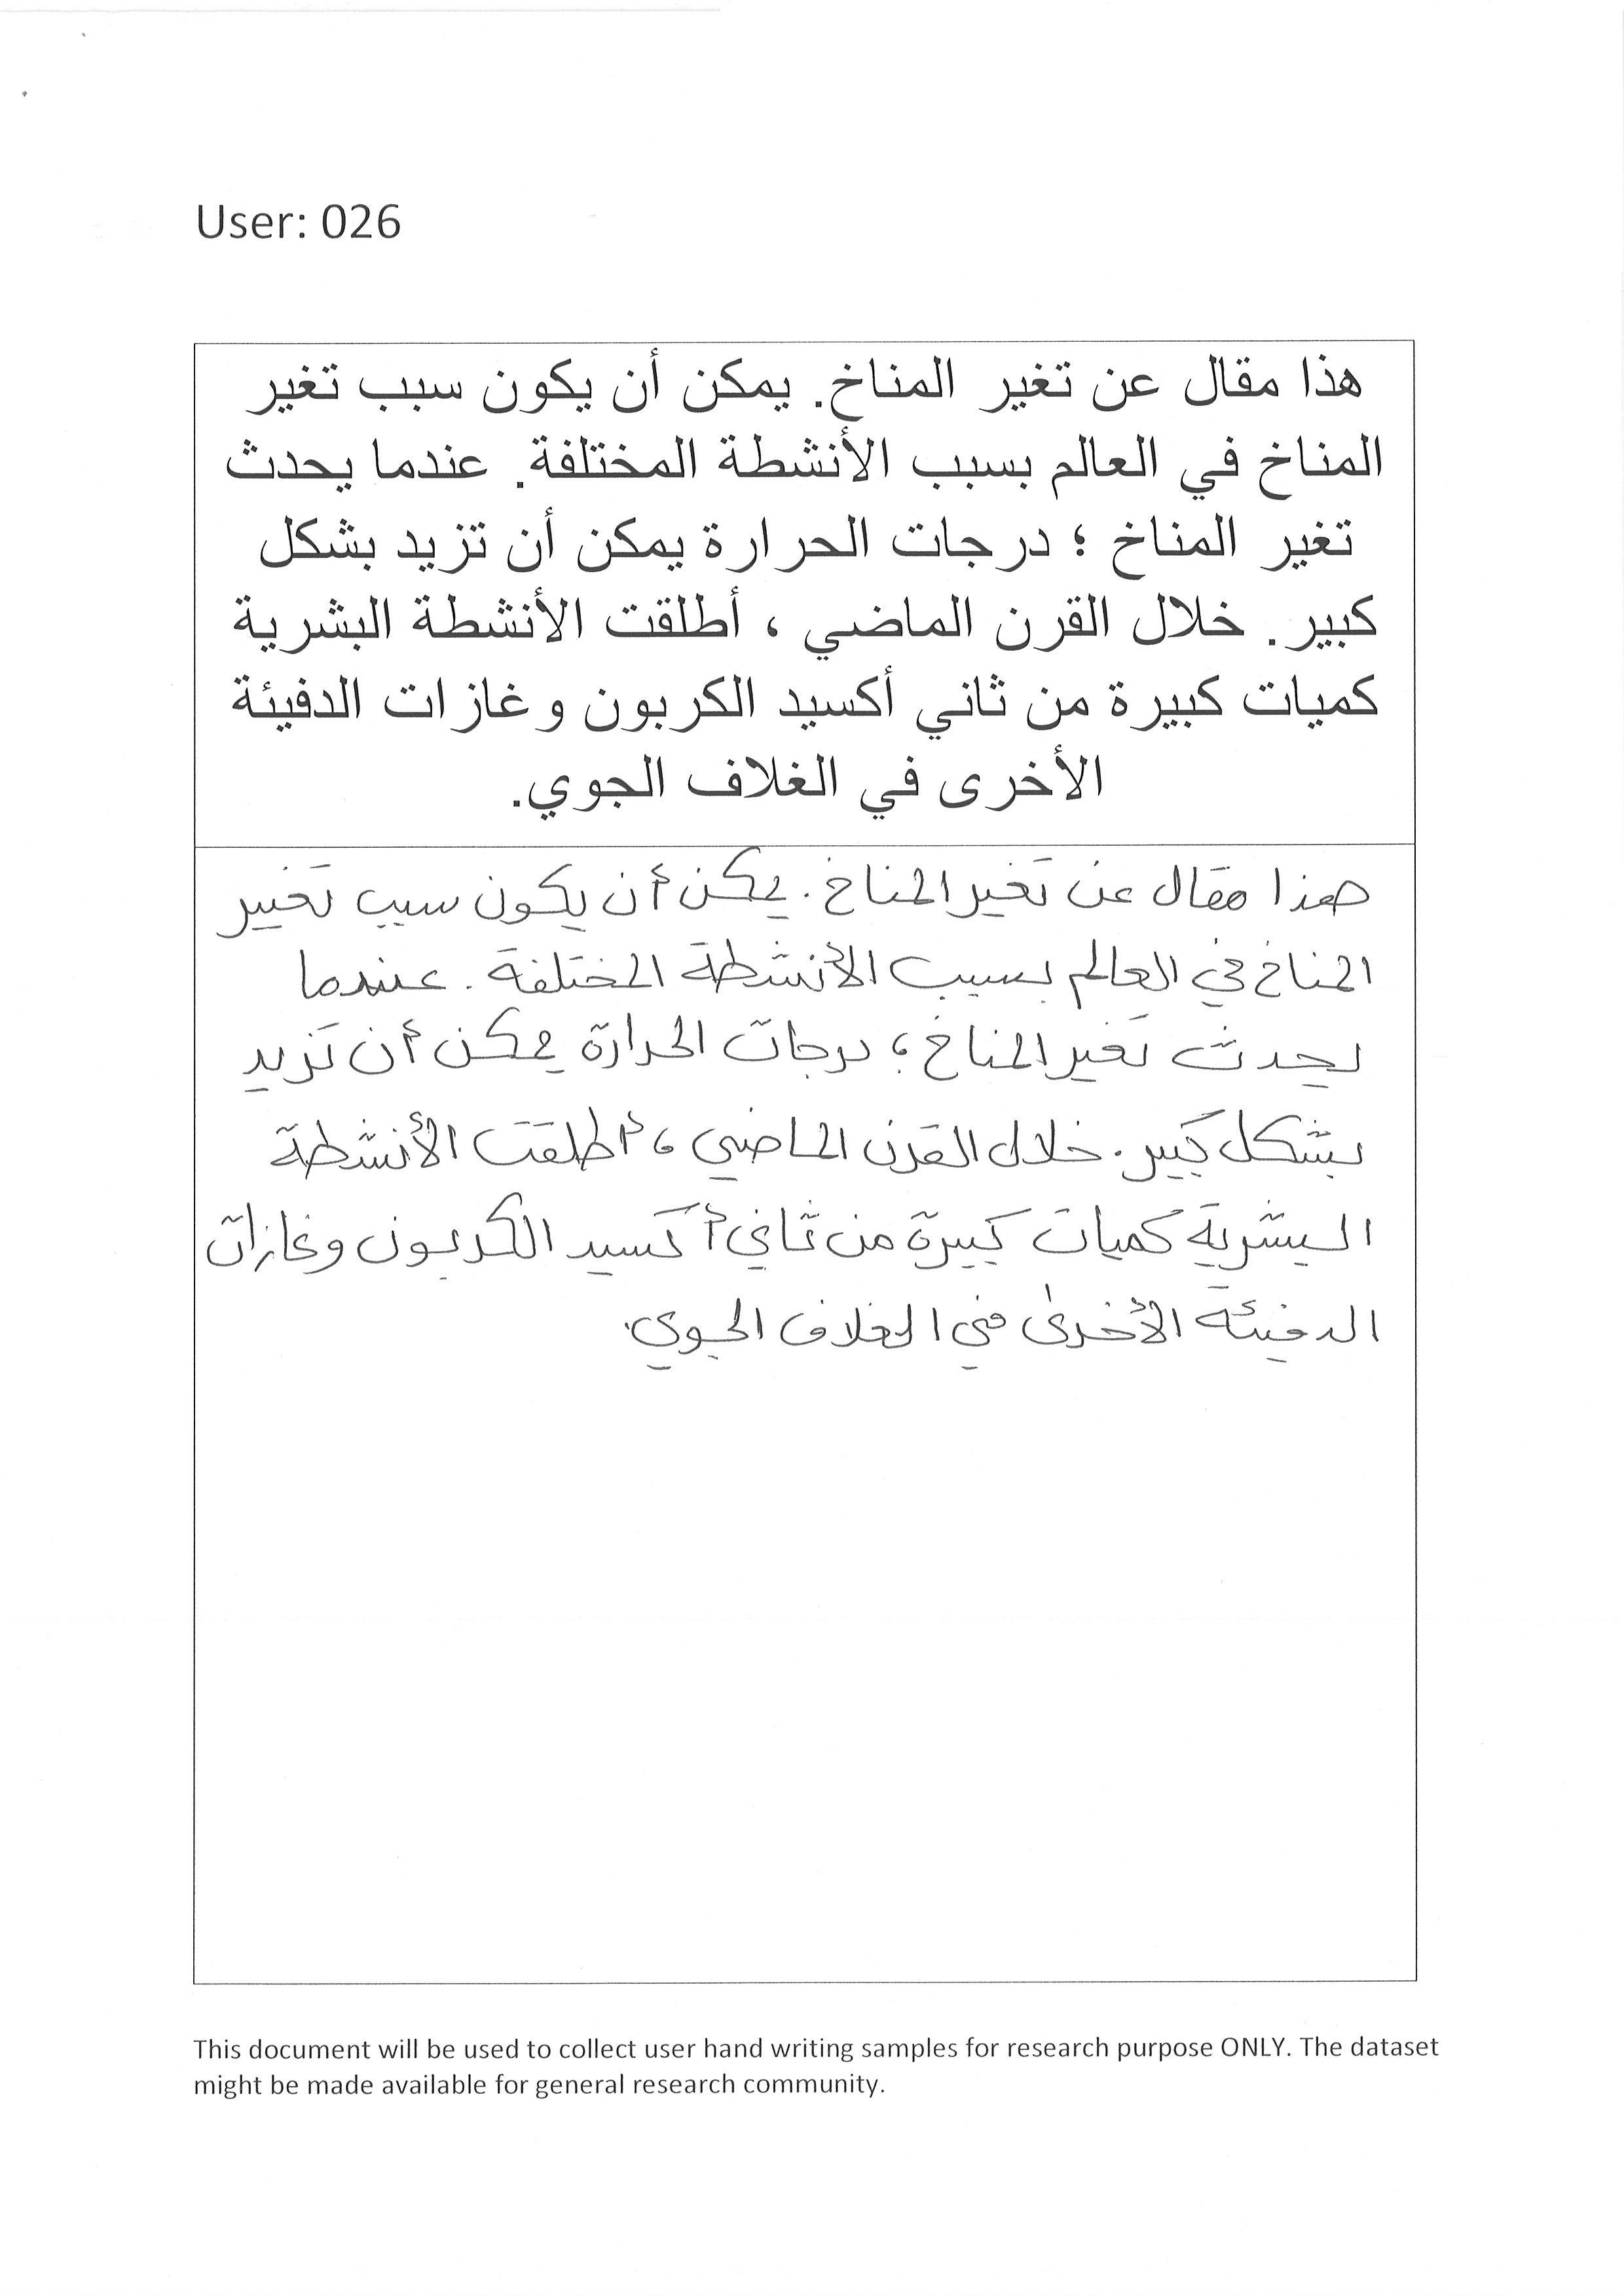 User: 026
هذا مقال عن تغير المناخ. يمكن أن يكون سبب تغير
المناخ في العالم بسبب الأنشطة المختلفة. عندما يحدث
تغير المناخ ؛ درجات الحرارة يمكن أن تزيد بشكل
كبير. خلال القرن الماضي ، أطلقت الأنشطة البشرية
كميات كبيرة من ثاني أكسيد الكربون وغازات الدفيئة
الأخرى في الغلاف الجوي.
هذا مقال عن تغير المناخ. يمكن أن يكون سبب تغيير
المناخ في العالم بسبب الأنشطة المختلفة. عندما
يحدث تغير المناخ ؛ درجات الحرارة يمكن أن تزيد
بشكل كبير. خلال القرن الماضي ، أطلقت الأنشطة
البشرية كميات كبيرة من ثاني أكسيد الكربون وغازات
الدفيئة الأخرى في الغلاف الجوي.
This document will be used to collect user hand writing samples for research purpose ONLY. The dataset
might be made available for general research community.